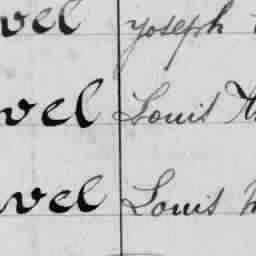 vel Joseph
vel Louis
vel Louis